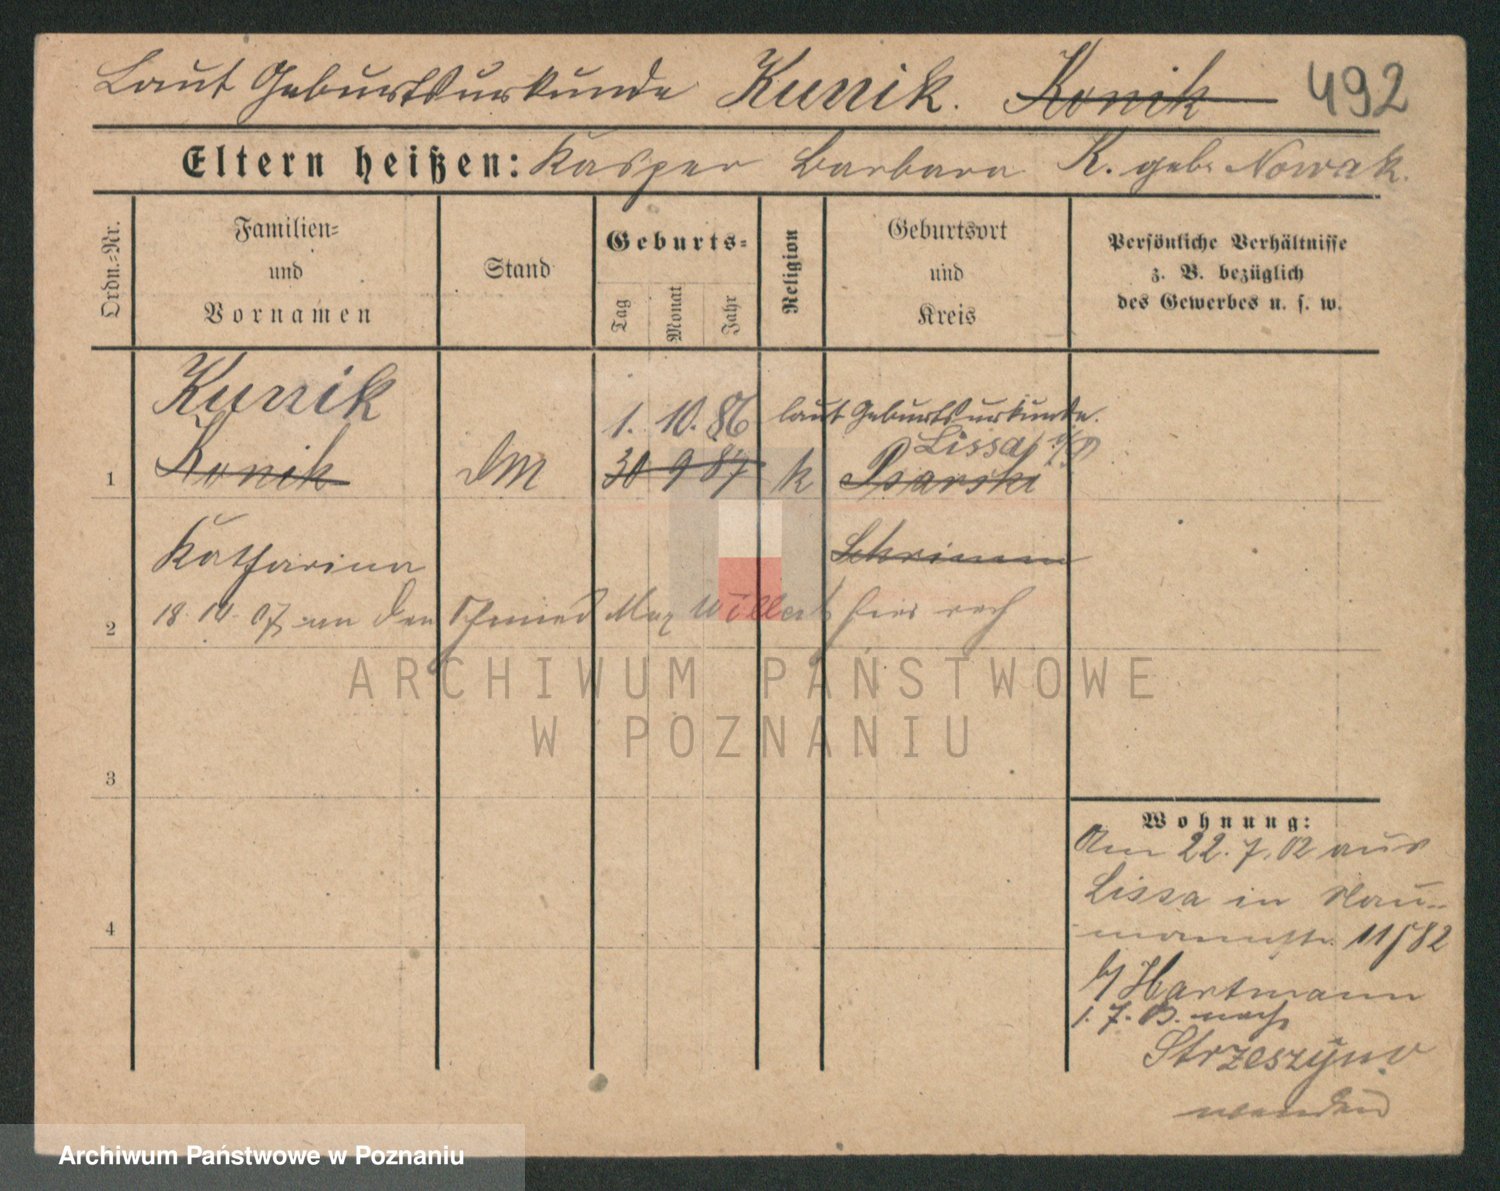 Laut Geburtsurkunde Kunik. Konik 492
Eltern heißen: Kasper Barbara K. geb. Nowak.
Ordn.=Nr.
Familien=
und
Vornamen
Stand
Geburts=
Tag
Monat
Jahr
Religion
Geburtsort
und
Kreis
Persönliche Verhältnisse
z. B. bezüglich
des Gewerbes u. s. w.
Kunik
1. 10. 86 laut Geburtsurkunde.
Lissa i/P
1 Konik DM 30 9 87 k Psarski
Katharina Schrimm
2 18. 10. 07 an den Schmied Max Willert hier
ARCHIWUM PAŃSTWOWE
W POZNANIU
3
4
Wohnung:
Am 22. 7. 02 aus
Lissa in Nau-
mannstr. 11/82
b/ Hartmann
1. 7. 03. nach
Strzeszyno
wenden
Archiwum Państwowe w Poznaniu